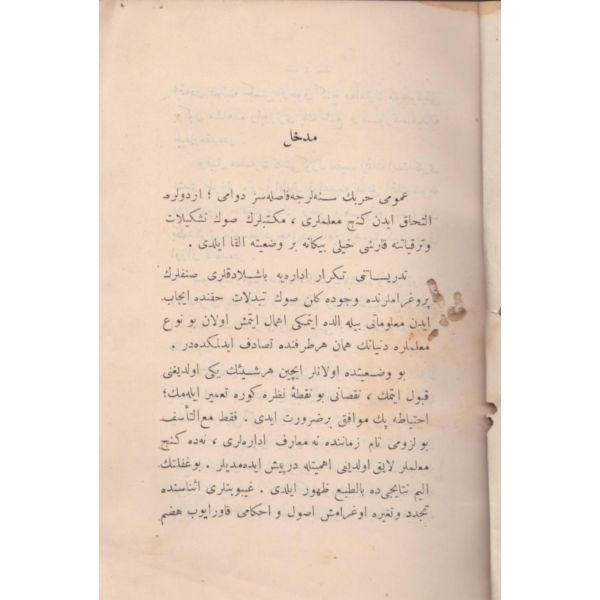 مدخل
عمومی حربك سنه‌لرجه فاصله‌سز دوامی ؛ اردولره
التحاق ایدن كنج معلملری ، مكتبلرك صوك تشكیلات
وترقیاتنه قارشی خیلی بیكانه بر وضعیته القا ایلدی .
تدریساتی تكرار اداره‌یه باشلادقلری صنفلرك
پروغراملرنده وجوده كلن صوك تبدلات حقنده ایجاب
ایدن معلوماتی بیله الده ایتمكی اهمال ایتمش اولان بو نوع
معلملره دنیانك همان هر طرفنده تصادف ایدلمكده‌در .
بو وضعیتده اولانلر ایچین هرشیئك یكی اولدیغنی
قبول ایتمك ، نقصانی بو نقطهٔ نظره كوره تعمیر ایله‌مك؛
احتیاطه پك موافق برضرورت ایدی . فقط مع‌التأسف
بو لزومی تام زماننده نه معارف اداره‌لری ، نه‌ده كنج
معلملر لایق اولدیغی اهمیتله درپیش ایده‌مدیلر . بو غفلتك
الیم نتایجی‌ده بالطبع ظهور ایلدی . غیبوبتلری اثناسنده
تجدد وتغیره اوغرامش اصول و احكامی قاورایوب هضم